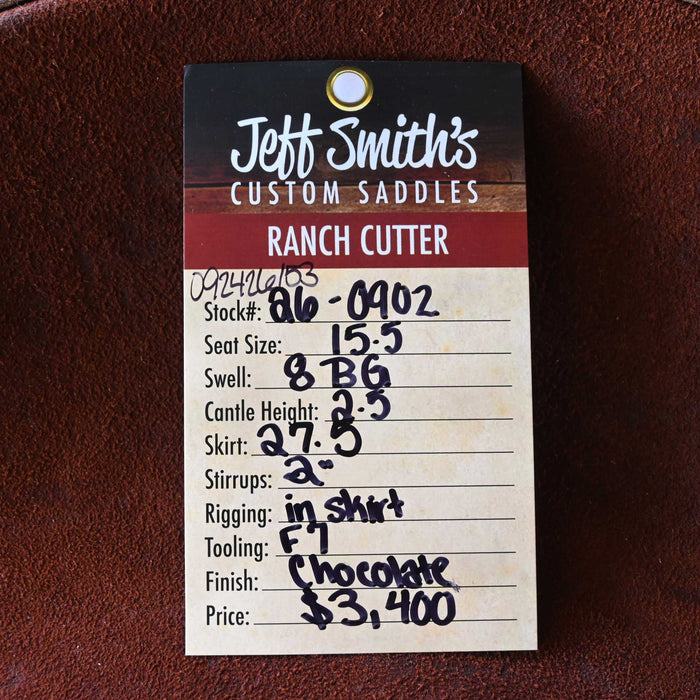 Jeff Smith's
CUSTOM SADDLES
RANCH CUTTER
092426153
Stock#: 26-0902
Seat Size: 15.5
Swell: 8 BG
Cantle Height: 2.5
Skirt: 27.5
Stirrups: 2"
Rigging: in skirt
Tooling: F7
Finish: Chocolate
Price: $3,400